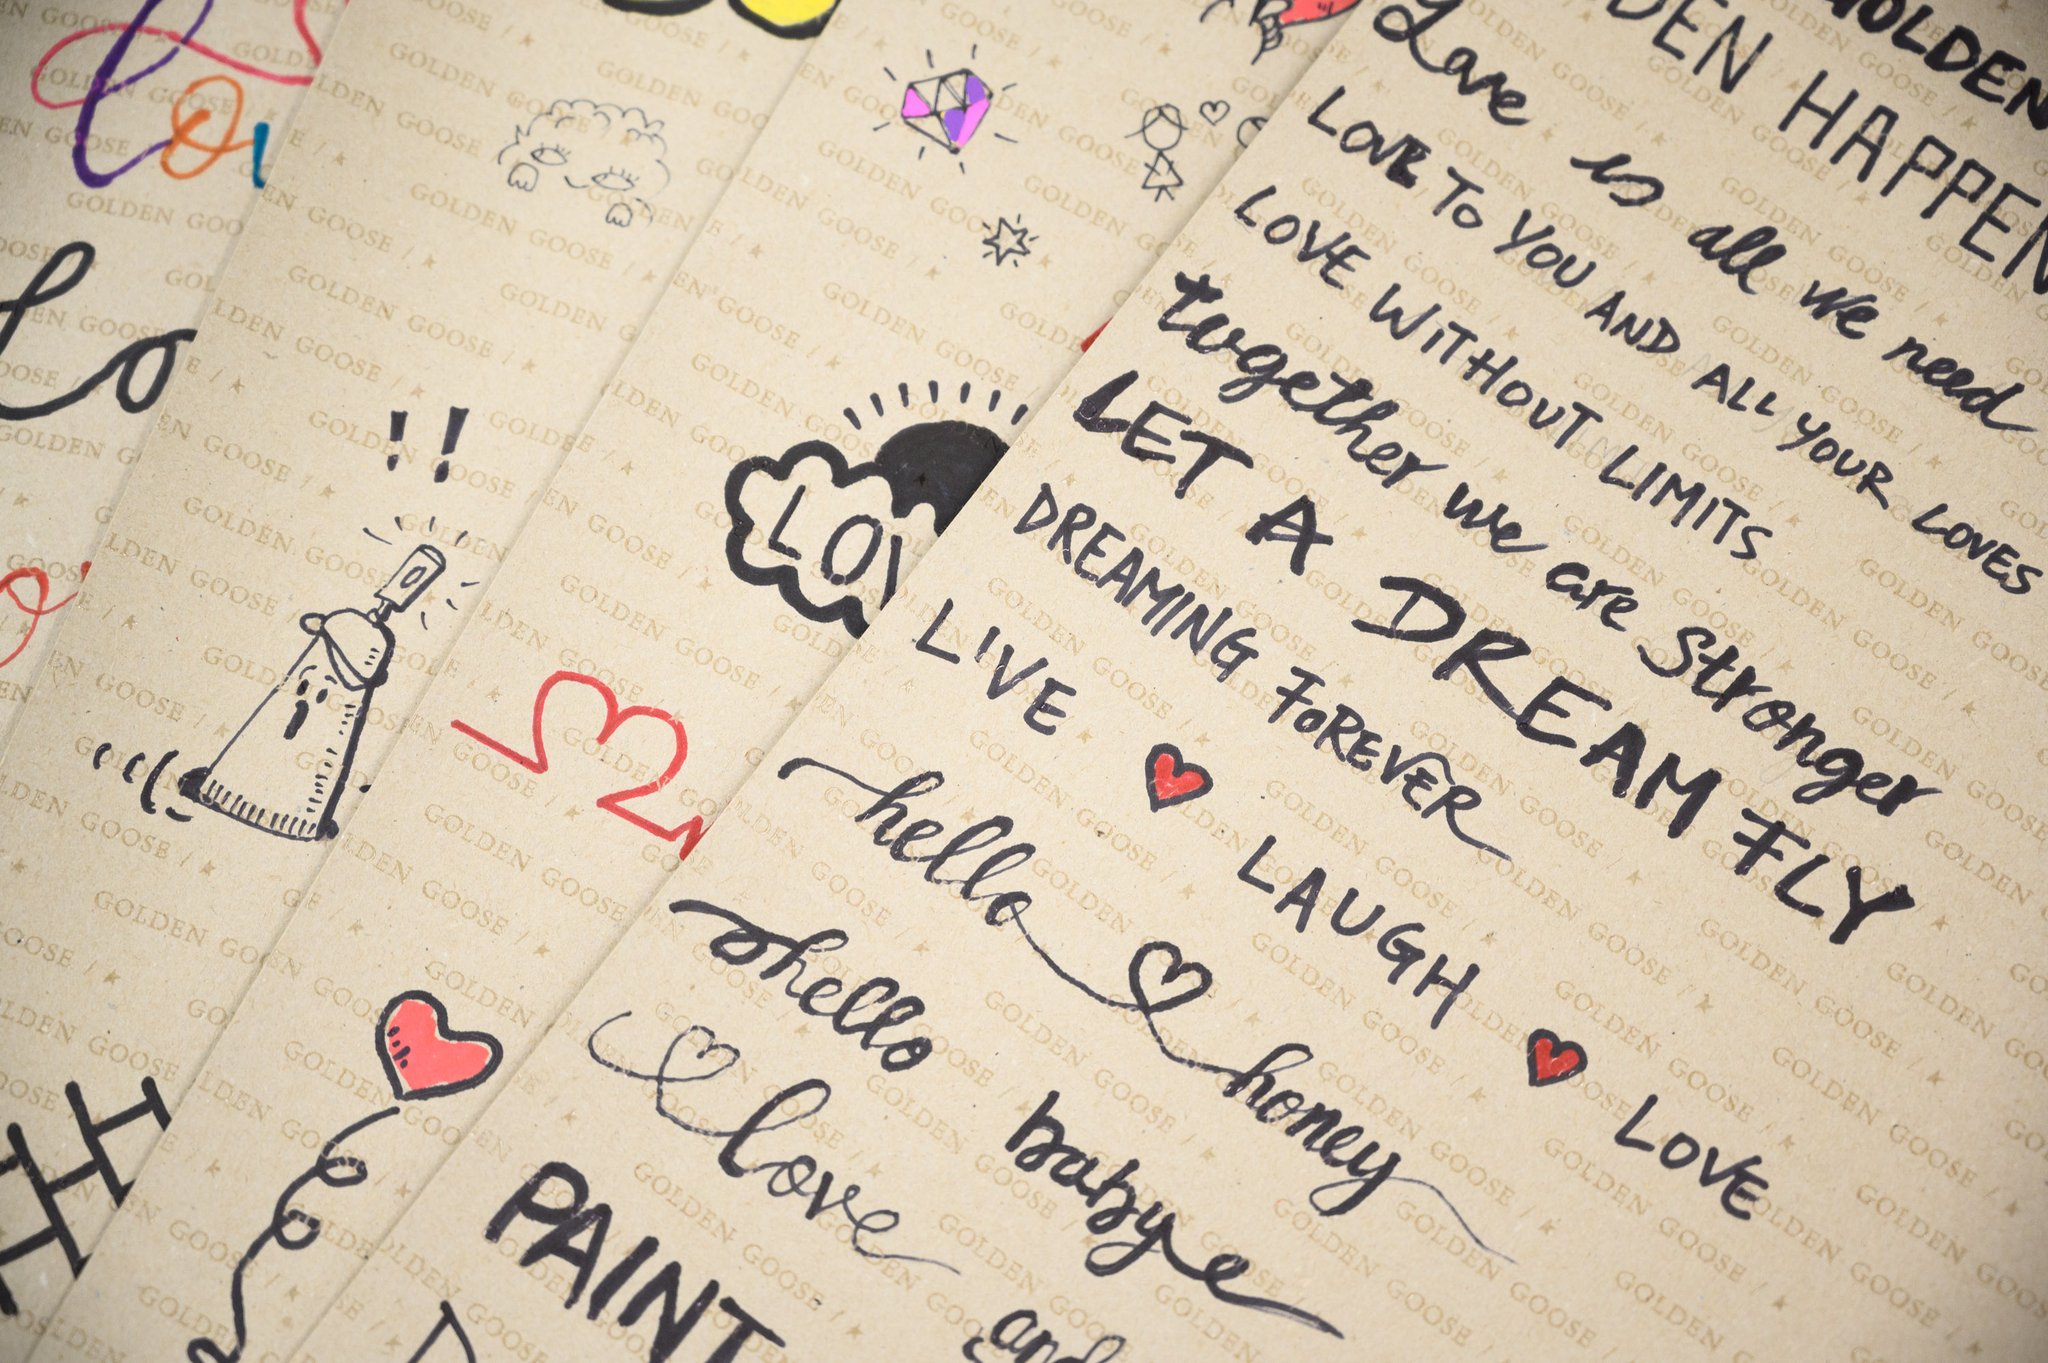 GOLDEN
DEN HAPPEN
Love is all we need
LOVE TO YOU AND ALL YOUR LOVES
LOVE WITHOUT LIMITS
together we are stronger
LET A DREAM FLY
DREAMING FOREVER
LIVE LAUGH LOVE
hello honey
hello babye
love
PAINT
and
LOV
GOLDEN GOOSE /